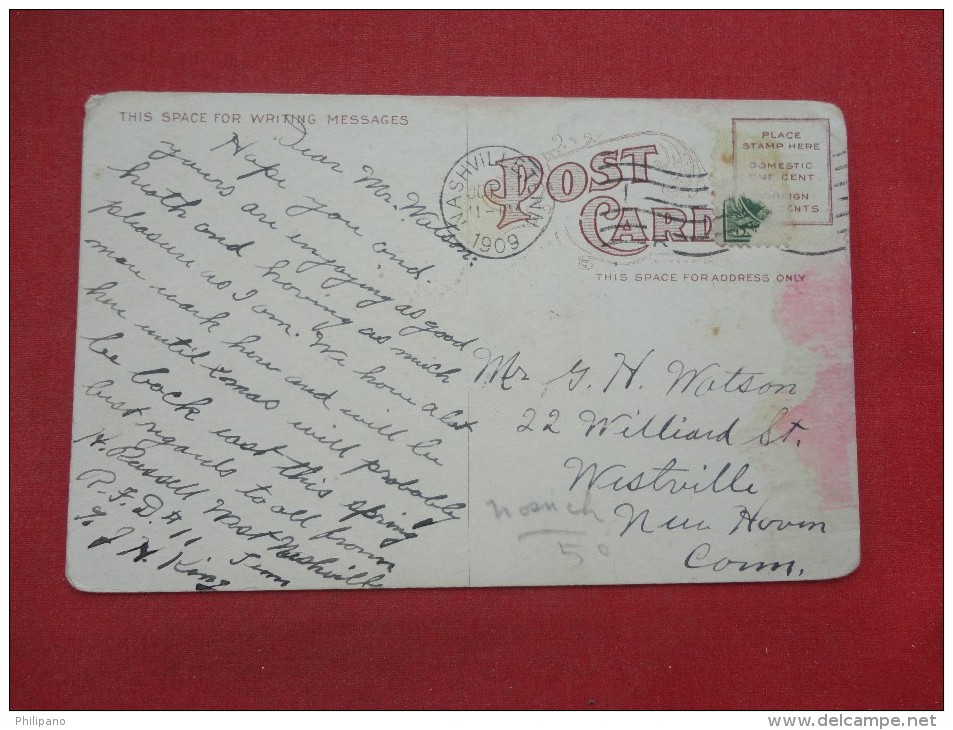 THIS SPACE FOR WRITING MESSAGES
Dear Mr. Watson:
Hope you and
yours are injoying as good
health and having as much
pleasure as I am. We have a lot
more work here and will be
here until Xmas will probably
be back east this spring
best regards to all from
H. Russell West Nashville
R.F.D. #11 Tenn
% J H. King
NASHVILLE, TENN.
1909
POST
CARD
PLACE
STAMP HERE
DOMESTIC
ONE CENT
THIS SPACE FOR ADDRESS ONLY
Mr G. H. Watson
22 Williard St.
Westville
New Haven
Conn.
50
Philipano
www.delcampe.net